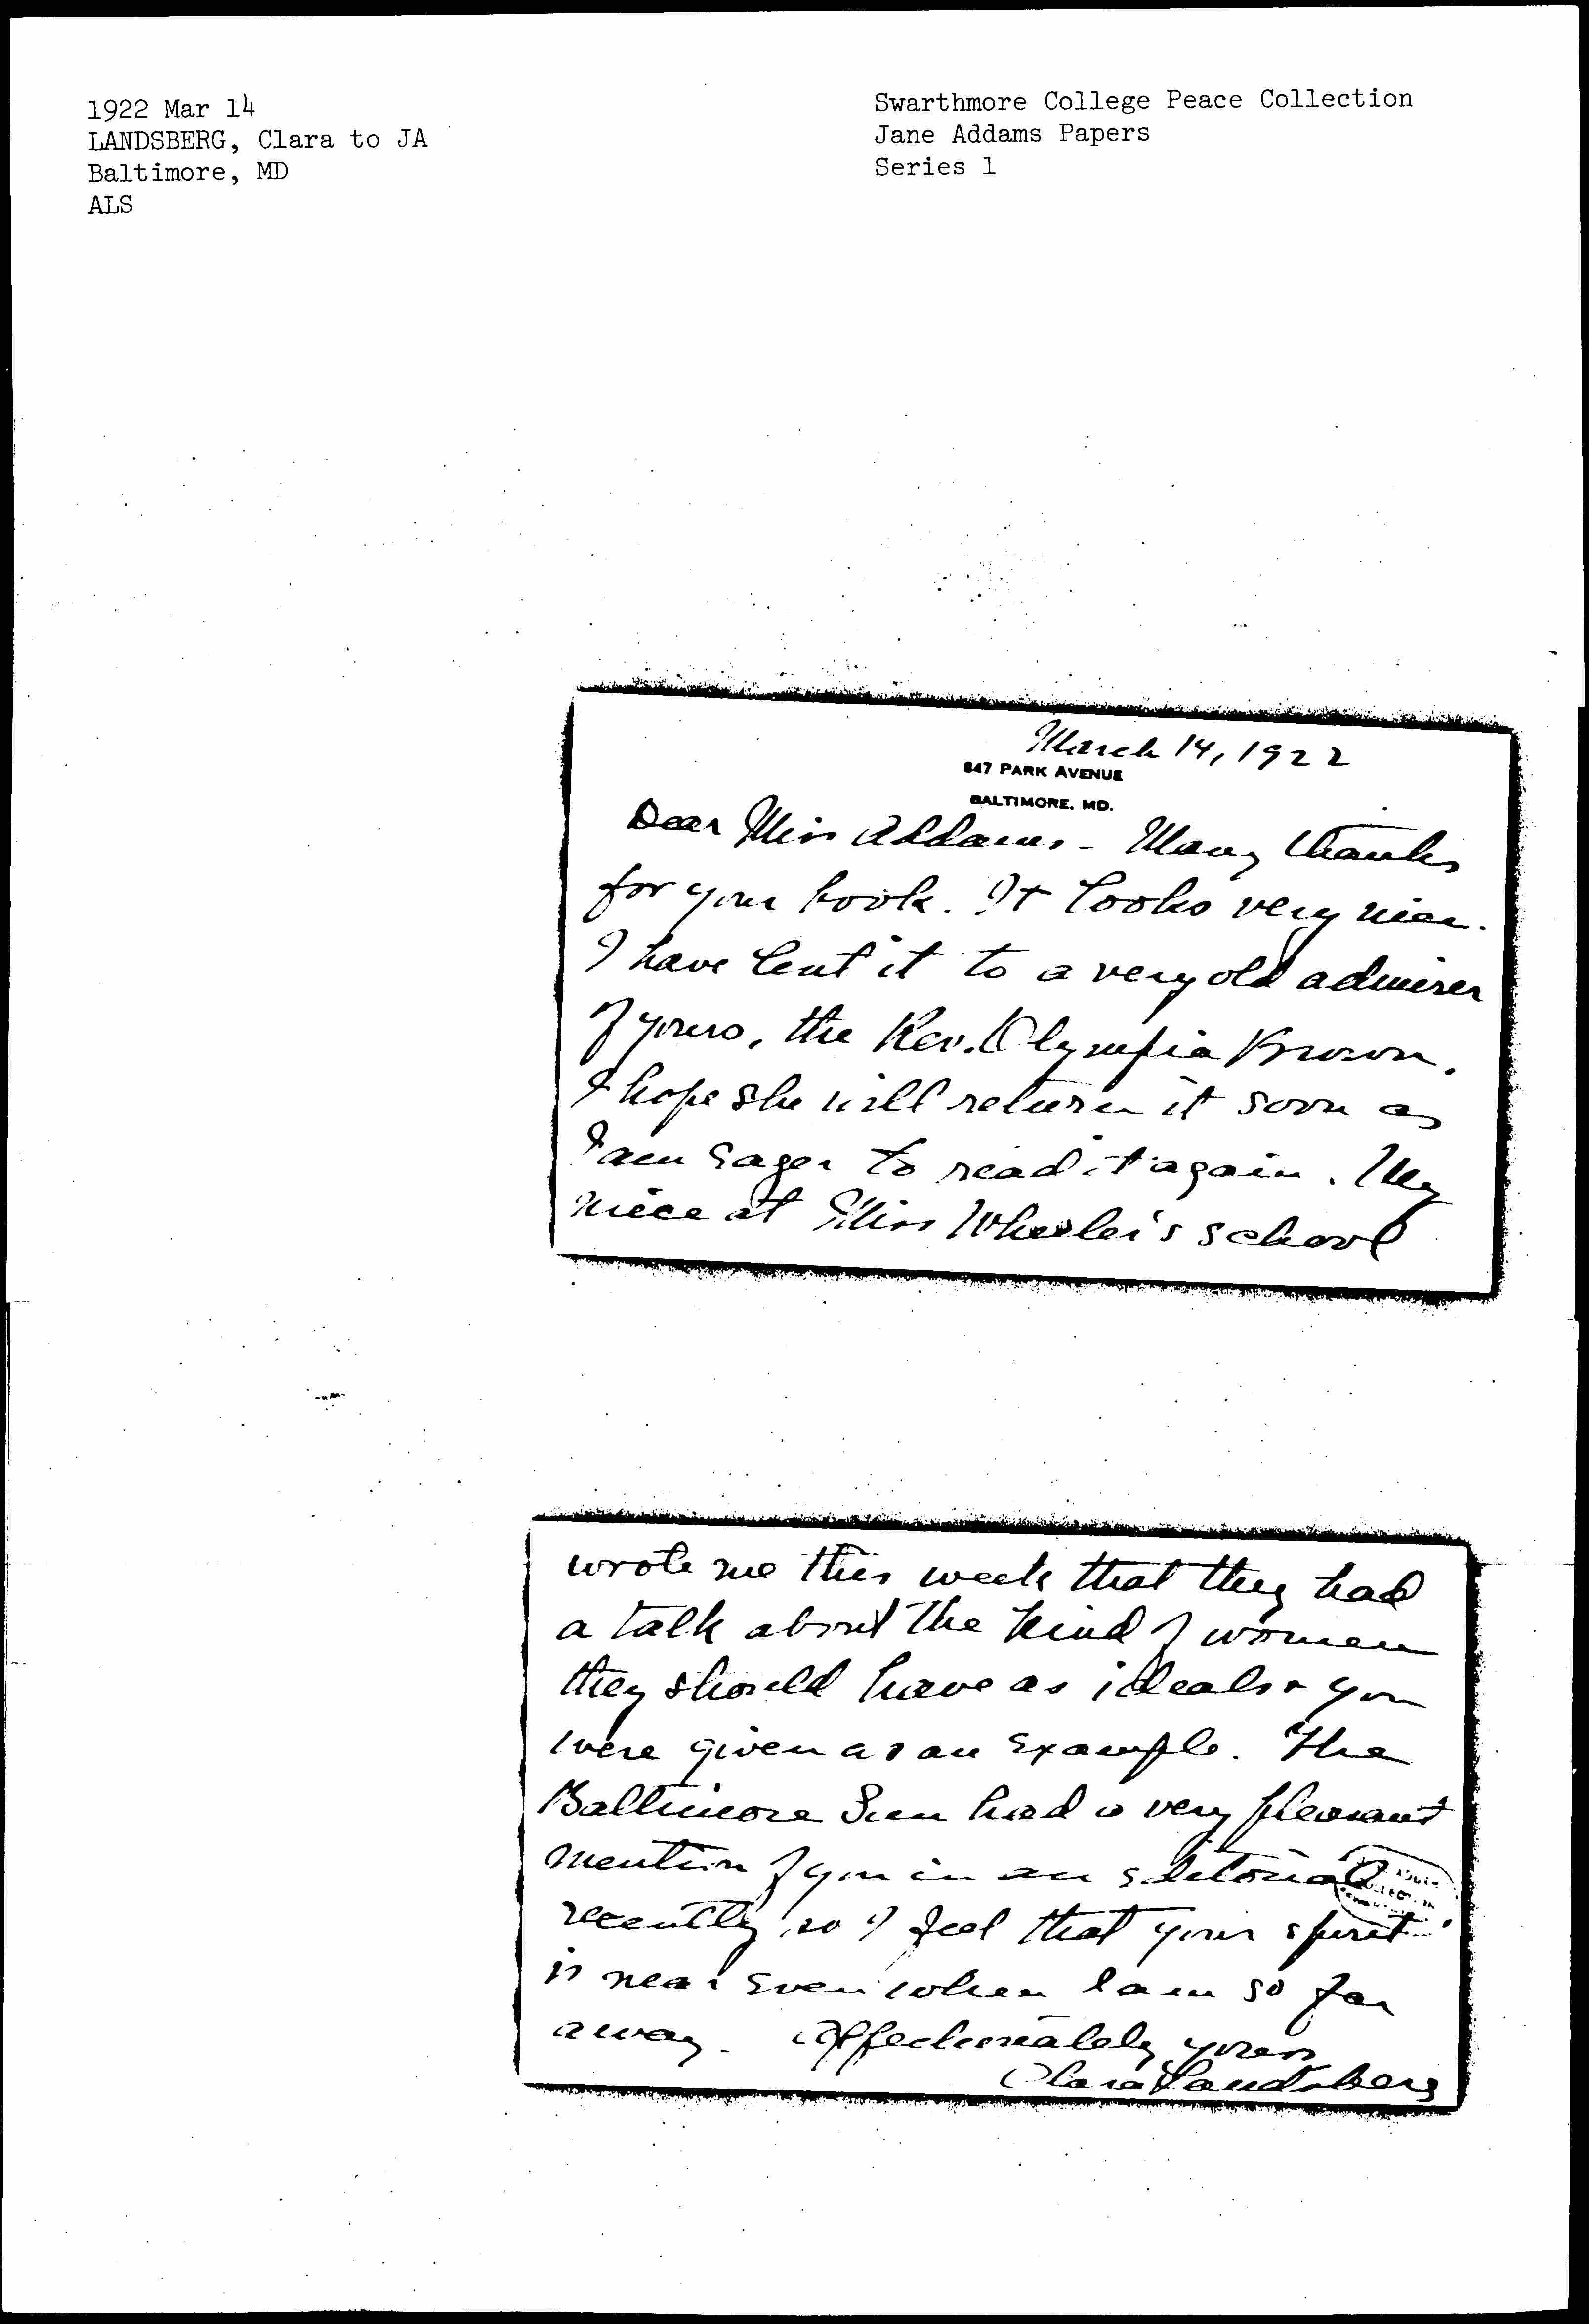 1922 Mar 14
LANDSBERG, Clara to JA
Baltimore, MD
ALS
Swarthmore College Peace Collection
Jane Addams Papers
Series 1
March 14, 1922
847 PARK AVENUE
BALTIMORE, MD.
Dear Miss Addams - Many thanks
for your book. It looks very nice.
I have lent it to a very old admirer
of yours, the Rev. Olympia Brown.
I hope she will return it soon as
I am eager to read it again. My
niece at Miss Wheeler's school
wrote me this week that they had
a talk about the kind of women
they should have as ideals & you
were given as an example. The
Baltimore Sun had a very pleasant
mention of you in an editorial
recently, so I feel that your spirit
is near even when I am so far
away. Affectionately yours
Clara Landsberg